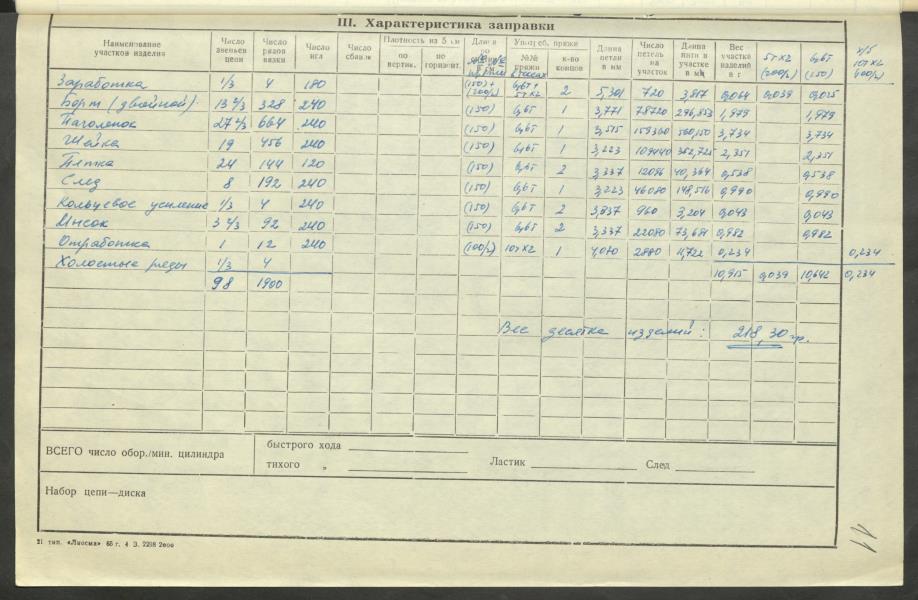 III. Характеристика заправки
Наименование участков изделия | Число звеньев цепи | Число рядов вязки | Число игл | Число сбавок | Плотность на 5 см по вертик. | по горизонт. | Употреб. пряжи №№ пряжи | к-во концов | Длина петли в мм | Число петель на участок | Длина нити в участке в мм | Вес участка изделий в г | 5тх2 (200/2) | 6,6т (150) | х/б 10тх2 (100/2)
Заработка 1/3 4 180 (150)+(200/2) 6,6т+5тх2 2 5,301 720 3,817 0,064 0,039 0,025
Борт (двойной) 13 2/3 328 240 (150) 6,6т 1 3,771 78720 296,853 1,979 1,979
Паголенок 27 2/3 664 240 (150) 6,6т 1 3,515 159360 560,150 3,734 3,734
Шейка 19 456 240 (150) 6,6т 1 3,223 109440 352,725 2,351 2,351
Пятка 24 144 120 (150) 6,6т 2 3,337 12096 40,364 0,538 0,538
След 8 192 240 (150) 6,6т 1 3,223 46080 148,516 0,990 0,990
Кольцевое усиление 1/3 4 240 (150) 6,6т 2 3,337 960 3,204 0,043 0,043
Мысок 3 2/3 92 240 (150) 6,6т 2 3,337 22080 73,681 0,982 0,982
Отработка 1 12 240 (100/2) 10тх2 1 4,070 2880 11,722 0,234 0,234
Холостые ряды 1/3 4
10,915 0,039 10,642 0,234
98 1900
Вес десятка изделий: 218,30 гр.
ВСЕГО число обор./мин. цилиндра
быстрого хода
тихого „ Ластик След
Набор цепи—диска
21 тип. «Лиесма» 65 г. 4 З. 2298 2000
11